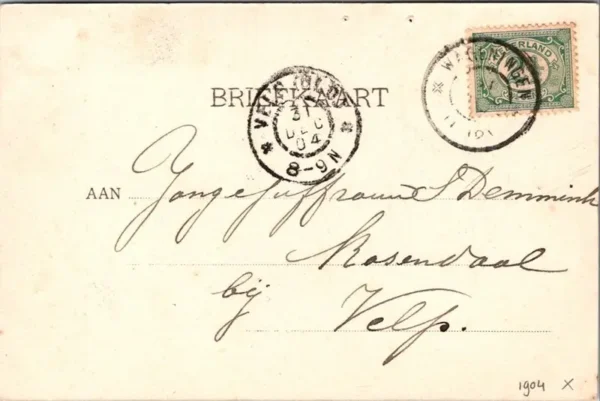 NEDERLAND
WAGENINGEN
BRIEFKAART
VELP (GLD)
31
DEC
04
8-9N
AAN Jongejuffrouw S Demmink
Rosendaal
bij Velp.
1904 X